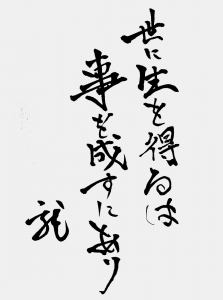 世に生を得るは
事を成すにあり
龍